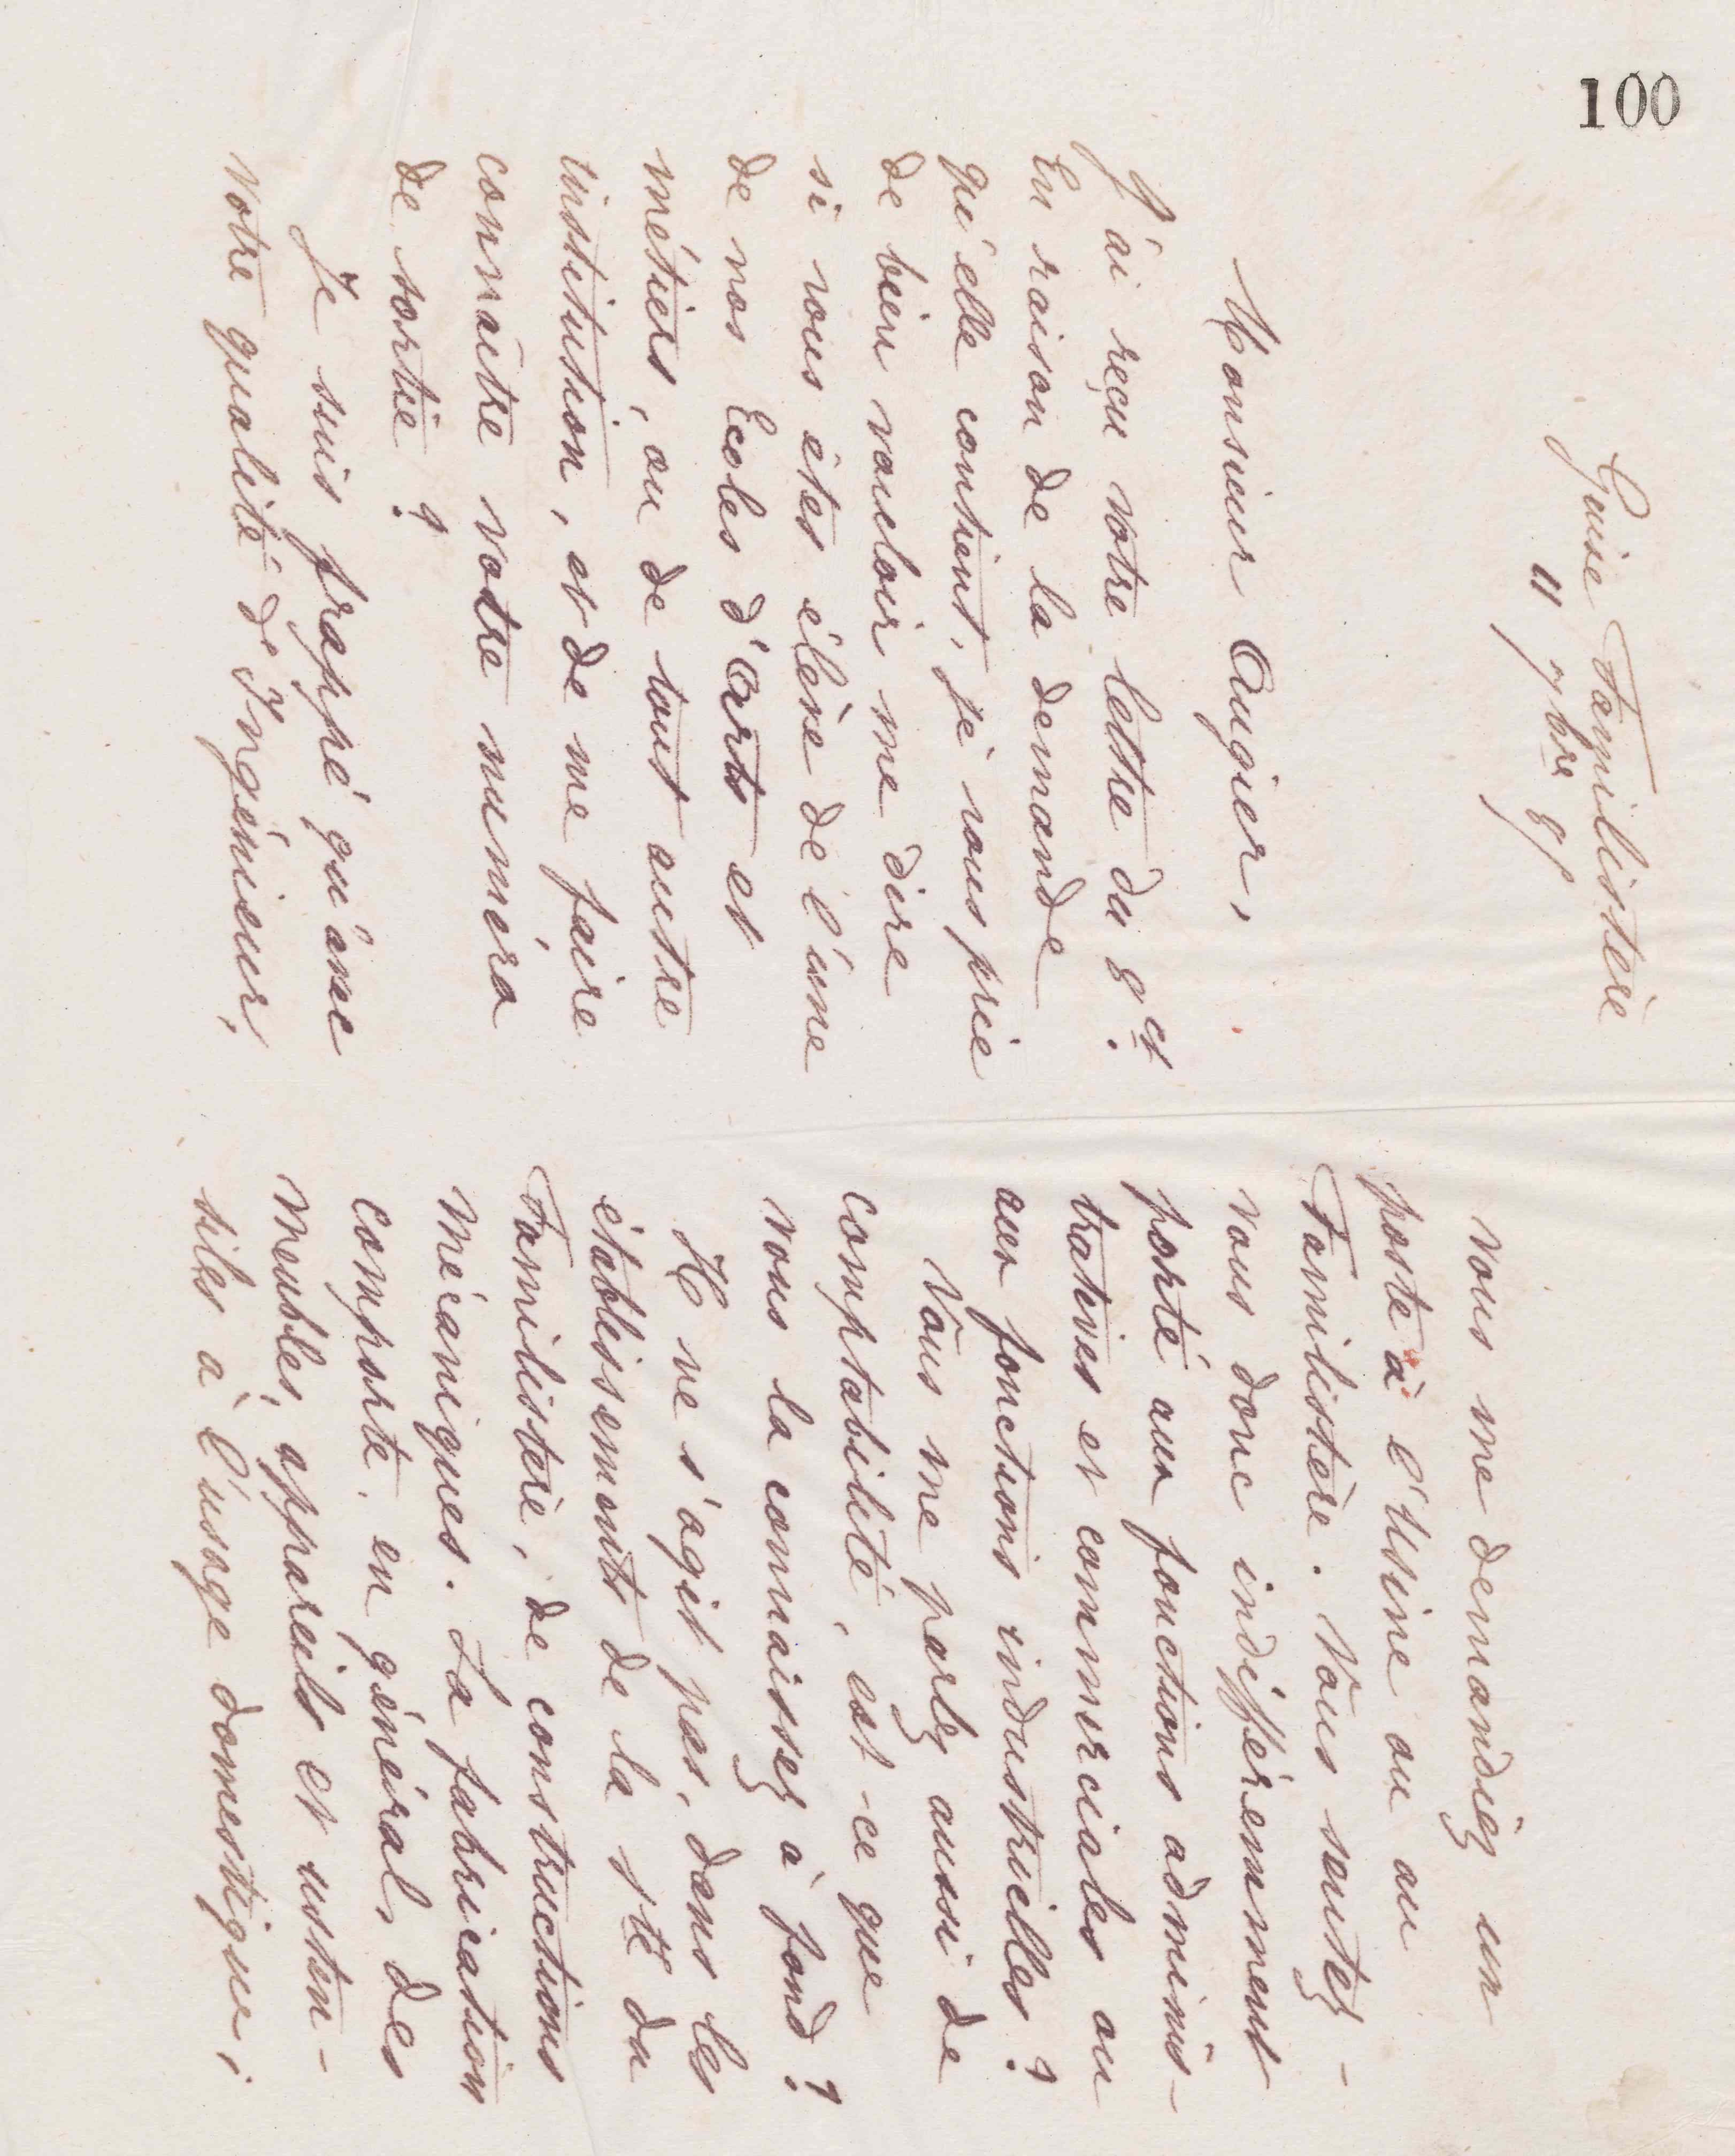 100
Guise Familistère
11 7bre 87
Monsieur Augier,
J'ai reçu votre lettre du 8 ct.
En raison de la demande
qu'elle contient, je vous prie
de bien vouloir me dire
si vous êtes élève de l'une
de nos Ecoles d'Arts et
métiers, ou de tout autre
institution, et de me faire
connaître votre numéro
de sortie ?
Je suis frappé qu'avec
votre qualité d'Ingénieur,
vous me demandiez un
poste à l'Usine ou au
Familistère. Vous sentez-
vous donc indifféremment
porté aux fonctions adminis-
tratives et commerciales ou
aux fonctions industrielles ?
Vous me parlez aussi de
comptabilité, est-ce que
vous la connaissez à fond ?
Il ne s'agit pas, dans les
établissements de la sté du
Familistère, de constructions
mécaniques. La fabrication
comporte, en général, des
meubles, appareils et usten-
siles à l'usage domestique ;